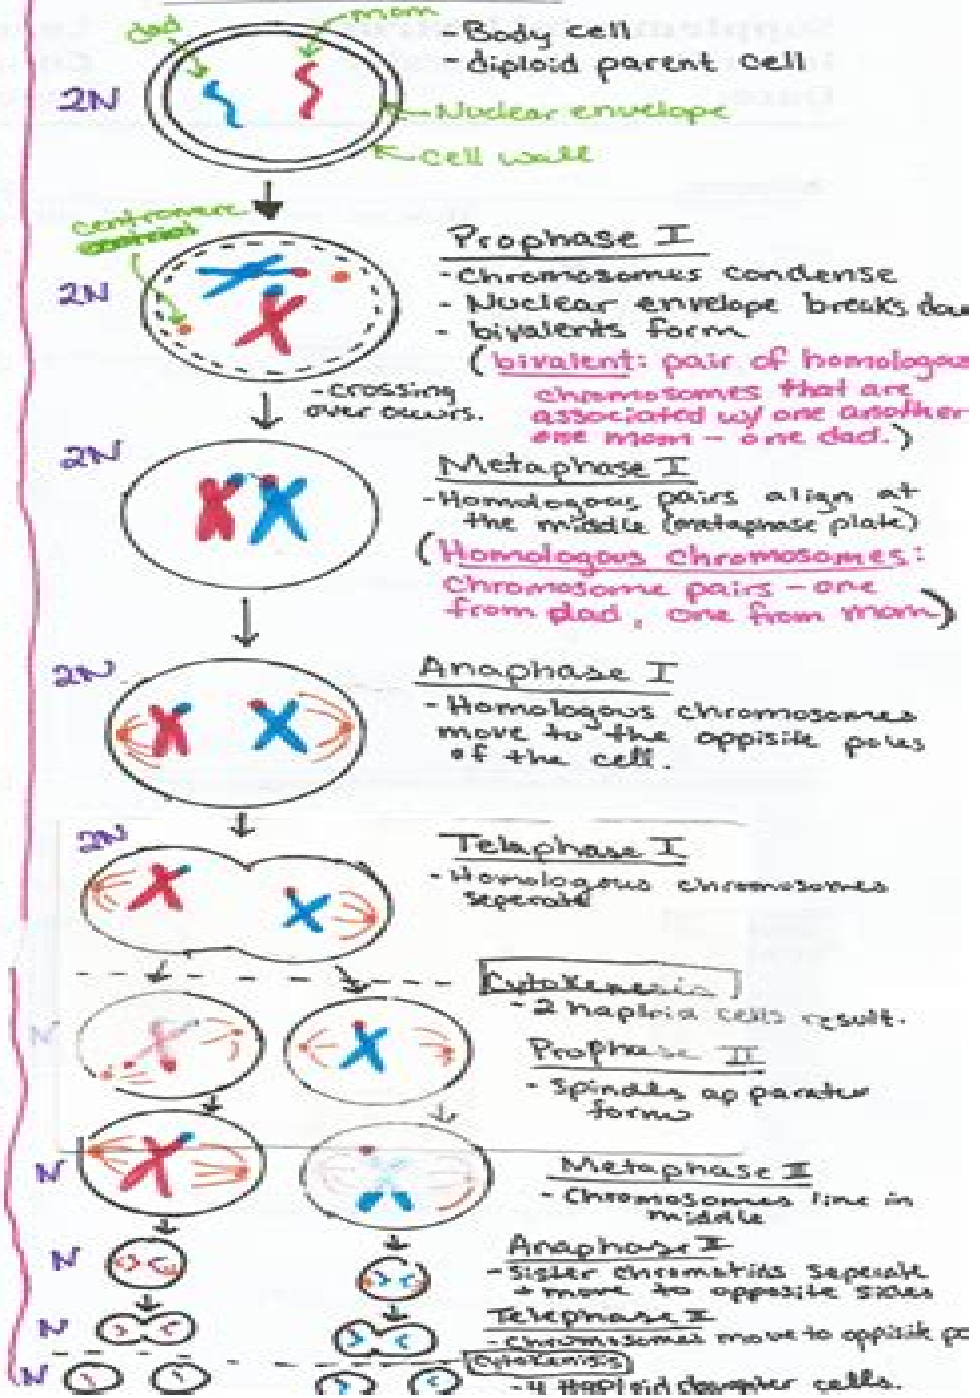 dad
mom
- Body cell
- diploid parent cell
2N
Nuclear envelope
cell wall
Prophase I
- Chromosomes condense
- Nuclear envelope breaks dow
- bivalents form
(bivalent: pair of homologous
chromosomes that are
associated w/ one another
one mom - one dad.)
2N
- crossing
over occurs.
2N
Metaphase I
- Homologous pairs align at
the middle (metaphase plate)
(Homologous chromosomes:
chromosome pairs - one
from dad, one from mom)
2N
Anaphase I
- Homologous chromosomes
move to the oppisite poles
of the cell.
2N
Telaphase I
- Homologous chromosomes
seperate
- 2 cells result.
N
Prophase II
- Spindles
form
N
Metaphase II
- Chromosomes line in
middle
N
Anaphase II
- Sister chromatids seperate
+ move to opposite sides
N
Telephase II
- chromosomes move to oppisite po
N
- 4 Haploid daughter cells.